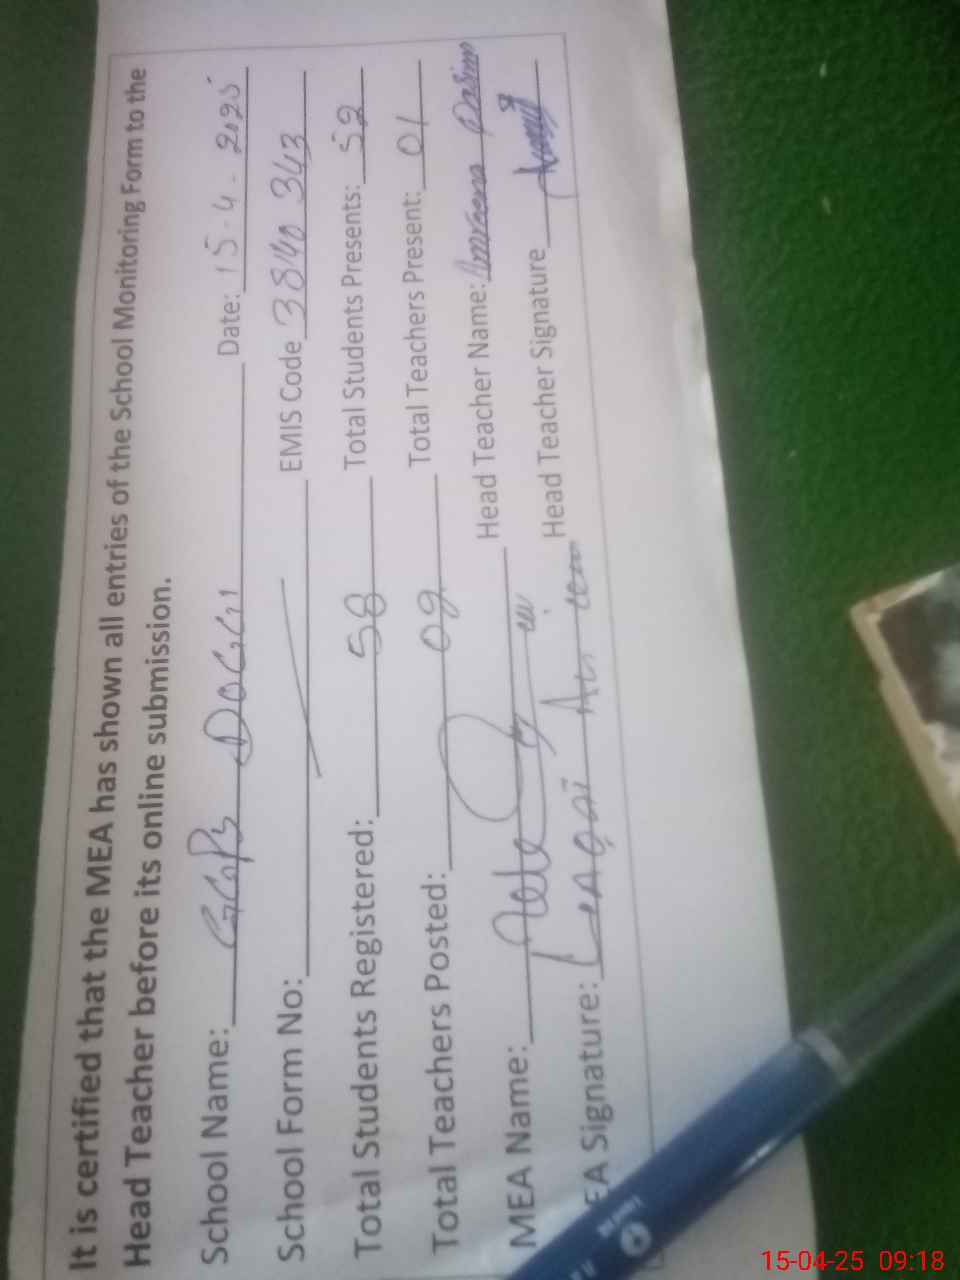 It is certified that the MEA has shown all entries of the School Monitoring Form to the
Head Teacher before its online submission.
School Name: GGPS DOGGI Date: 15-4-2025
School Form No: EMIS Code 38140 343
Total Students Registered: 58 Total Students Presents: 52
Total Teachers Posted: 02 Total Teachers Present: 01
MEA Name: Head Teacher Name: Amreena
EA Signature: Head Teacher Signature
15-04-25 09:18